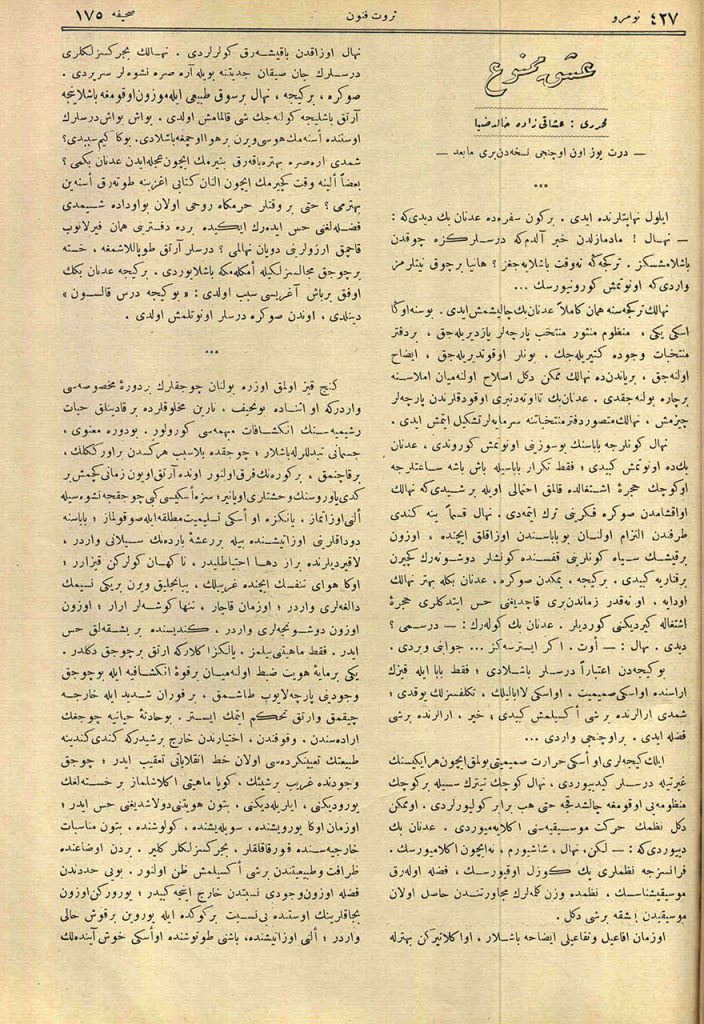 ٤٢٧ نومرو
ثروت فنون
صحیفه ١٧٥
عشق ممنوع
محرری : عشاقی زاده خالد ضیا
— درت یوز اون اوچنجی نسخه‌دن بری مابعد —
***
ایلول نهایتلرنده ایدی . برکون سفره‌ده عدنان بك دیدی‌که :
— نهال ! مادمازلدن خبر آلدم‌که درسلرکزه چوقدن
باشلامشسکز . ترکجه‌که نه‌وقت باشلایه‌جغز ؟ هانیا برچوق نیتلرمز
واردی‌که اونوتمش کورونیورسك ...
نهالك ترکجه‌سنه همان کاملاً عدنان بك چالیشمش ایدی . بوسنه اوکا
اسکی یکی ، منظوم منثور منتخب پارچه‌لر یازدیریله‌جق ، بردفتر
منتخبات وجوده کتیریله‌جك . بونلر اوقوتدیریله‌جق ، ایضاح
اولنه‌جق ، بریاندن‌ده نهالك ممکن دکل اصلاح اولنه‌میان املاسنه
برچاره بولنه‌جقدی . عدنان بك تااوته‌دنبری اوقودقلرندن پارچه‌لر
چیزمش ، نهالك متصور دفتر منتخباتنه سرمایه‌لر تشکیل ایتمش ایدی .
نهال کونلرجه باباسنك بوسوزینی اونوتمش کوروندی ، عدنان
بك‌ده اونوتمش کیبدی ؛ فقط تکرار باباسیله باش باشه ساعتلرجه
اوکوچك حجرهٔ اشتغالده قالمق احتمالی اویله بر شیدی‌که نهالك
اواقشامدن صوکره فکرینی ترك ایتمه‌دی . نهال قسماً ینه کندی
طرفندن التزام اولنان بوباباسندن اوزاقلق ایچنده ، اوزون
برقیشك سیاه کونلرینی قفسنده کونشلر دوشونه‌رك کچیرن
برقناریه کیبدی . برکیجه ، یمکدن صوکره ، عدنان بکله بهتر نهالك
اودایه ، او نه‌قدر زماندن‌بری قاچدیغنی حس ایتدکلری حجرهٔ
اشتغاله کیردیکنی کوردیلر . عدنان بك کوله‌رك : — درسمی ؟
دیدی . نهال : — أوت . اکر ایسترسه‌کز ... جوابنی ویردی .
بوکیجه‌دن اعتباراً درسلر باشلادی ؛ فقط بابا ایله قیزك
اراسنده اواسکی صمیمیت ، اواسکی لاابالیلك ، تکلفسزلك یوقدی ؛
شمدی ارالرنده بر شی أکسیلمش کیبدی ، خیر ، ارالرنده برشی
فضله ایدی . بر اوچنجی واردی ...
ایلك کیجه‌لری او أسکی حرارت صمیمیتی بولمق ایچون هرایکیسنك
غیرتیله درسلر کیدییوردی . نهال کوچك تیترك سسیله برکوچك
منظومه‌یی اوقومغه چالیشدقجه حتی هپ برابر کولیورلردی . اوممکن
دکل نظمك حرکت موسیقیه‌سنی اکلایه‌میوردی . عدنان بك
دییوردی‌که : — لکن، نهال ، شاشیورم ، نه‌ایچون اکلامیورسك .
فرانسزجه نظملری پك کوزل اوقیورسك ، فضله اوله‌رق
موسیقیشناسسك ، نظمده وزن کله‌لرك مجاورتندن حاصل اولان
موسیقیدن باشقه برشی دکل .
اوزمان افاعیل وتفاعیلی ایضاحه باشلار ، اواکلاتیرکن بهترله
نهال اوزاقدن باقیشه‌رق کولرلردی . نهالك بجرکسزلکلری
درسلرك جان صیقان جدیتنه بویله آره صره نشوه‌لر سرپردی .
صوکره ، برکیجه ، نهال برسوق طبیعی ایله موزون اوقومغه باشلاینجه
آرتق باشلیجه کوله‌جك شی قالمامش اولدی . یواش یواش درسلرك
اوستنده أسنه‌مك هوسی ویرن برهوا اوچمغه باشلادی. بوکا کیم سببدی؟
شمدی اره‌صره بهتره باقه‌رق بتیرمك ایچون عجله‌ایدن عدنان بکمی ؟
بعضاً ألینه وقت کچیرمك ایچون النان کتابی اغزینه طوته‌رق أسنه‌ین
بهترمی ؟ حتی بر وقتلر حرمکاه روحی اولان بواوداده شیمدی
فضله‌لغنی حس ایده‌رك ایکیده برده دفترینی همان فیرلاتوب
قاچمق ارزولرینی دویان نهالمی ؟ درسلر آرتق طویاللاشمغه ، خسته
برچوجق مجالسزلکیله أمکله‌مکه باشلایوردی . برکیجه عدنان بکك
اوفق برباش آغریسی سبب اولدی : « بوکیجه درس قالسون »
دینلدی ، اوندن صوکره درسلر اونوتلمش اولدی .
***
کنج قیز اولمق اوزره بولنان چوجقلرك بردورهٔ مخصوصه‌سی
واردرکه او اثناده بونحیف . نارین مخلوقلرده برقادینلق حیات
رشیمیه‌سنك انکشافات مهمه‌سی کورولور . بودوره معنوی ،
جسمانی تبدللرله باشلار ؛ چوجقده بلاسبب هرکسدن براورککلك ،
برقاچنمق ، برکوره‌نك فرق اولنور اونده آرتق اویون زمانی کچمش بر
کدی یاوروسنك وحشتلری اویانیر؛ سزه أسکیسی کبی چوجقجه نشوه‌سیله
ألنی اوزاتماز . یانکزه او أسکی تسلیمیت مطلقه ایله صوقولماز ؛ باباسنه
دوداقلرینی اوزاتیشنده بیله بر رعشهٔ بارده‌نك سیلانی واردر ،
لاقیردیلرنده براز دها احتیاطلیدر ، ناکهان کولرکن قیزارر ؛
اوکا هوای تنفسك ایچنده غریبلك ، بیانجیلق ویرن بریکی نسیمك
دالغه‌لری واردر ؛ اوزمان قاچار ، تنها کوشه‌لر ارار ؛ اوزون
اوزون دوشونجه‌لری واردر ، کندیسنده بر بشقه‌لق حس
ایدر . فقط ماهیتنی بیلمز . یالکز اکلارکه ارتق برچوجق دکلدر .
یکی برمایهٔ هویت ضبط اولنه‌میان برقوهٔ انکشافیه ایله بوچوجق
وجودینی پارچه‌لایوب طاشمق ، برفوران شدید ایله خارجه
چیقمق وارتق تحکم ایتمك ایستر . بوحادثهٔ حیاتیه چوجغك
اراده‌سندن . وقوفندن ، اختیارندن خارج برشیدرکه کندی کندینه
طبیعتك تعیین‌کرده‌سی اولان خط انقلاباتی تعقیب ایدر ؛ چوجق
وجودنده غریب برشیئك ، کویا ماهیتی اکلاشلماز بر خسته‌لغك
یورودیکنی ، ایلریله‌دیکنی ، بتون هویتنی دولاشدیغنی حس ایدر ؛
اوزمان اوکا یورویشنده ، سویله‌یشنده ، کولوشنده ، بتون مناسبات
خارجیه‌سنده قورقاقلقلر، بجرکسزلکلر کلیر . بردن اوضاعنده
ظرافت وطبیعتندن برشی أکسیلمش ظن اولنور . بویی حددندن
فضله اوزون وجودی نسبتدن خارج اینجه کیبدر ؛ یورورکن اوزون
بجاقلرینك اوستنده بی‌نسبت برکوکده ایله یوروین برقوش حالی
واردر ؛ ألنی اوزاتیشنده، باشنی طوتوشنده اوأسکی خوش آینده‌لك